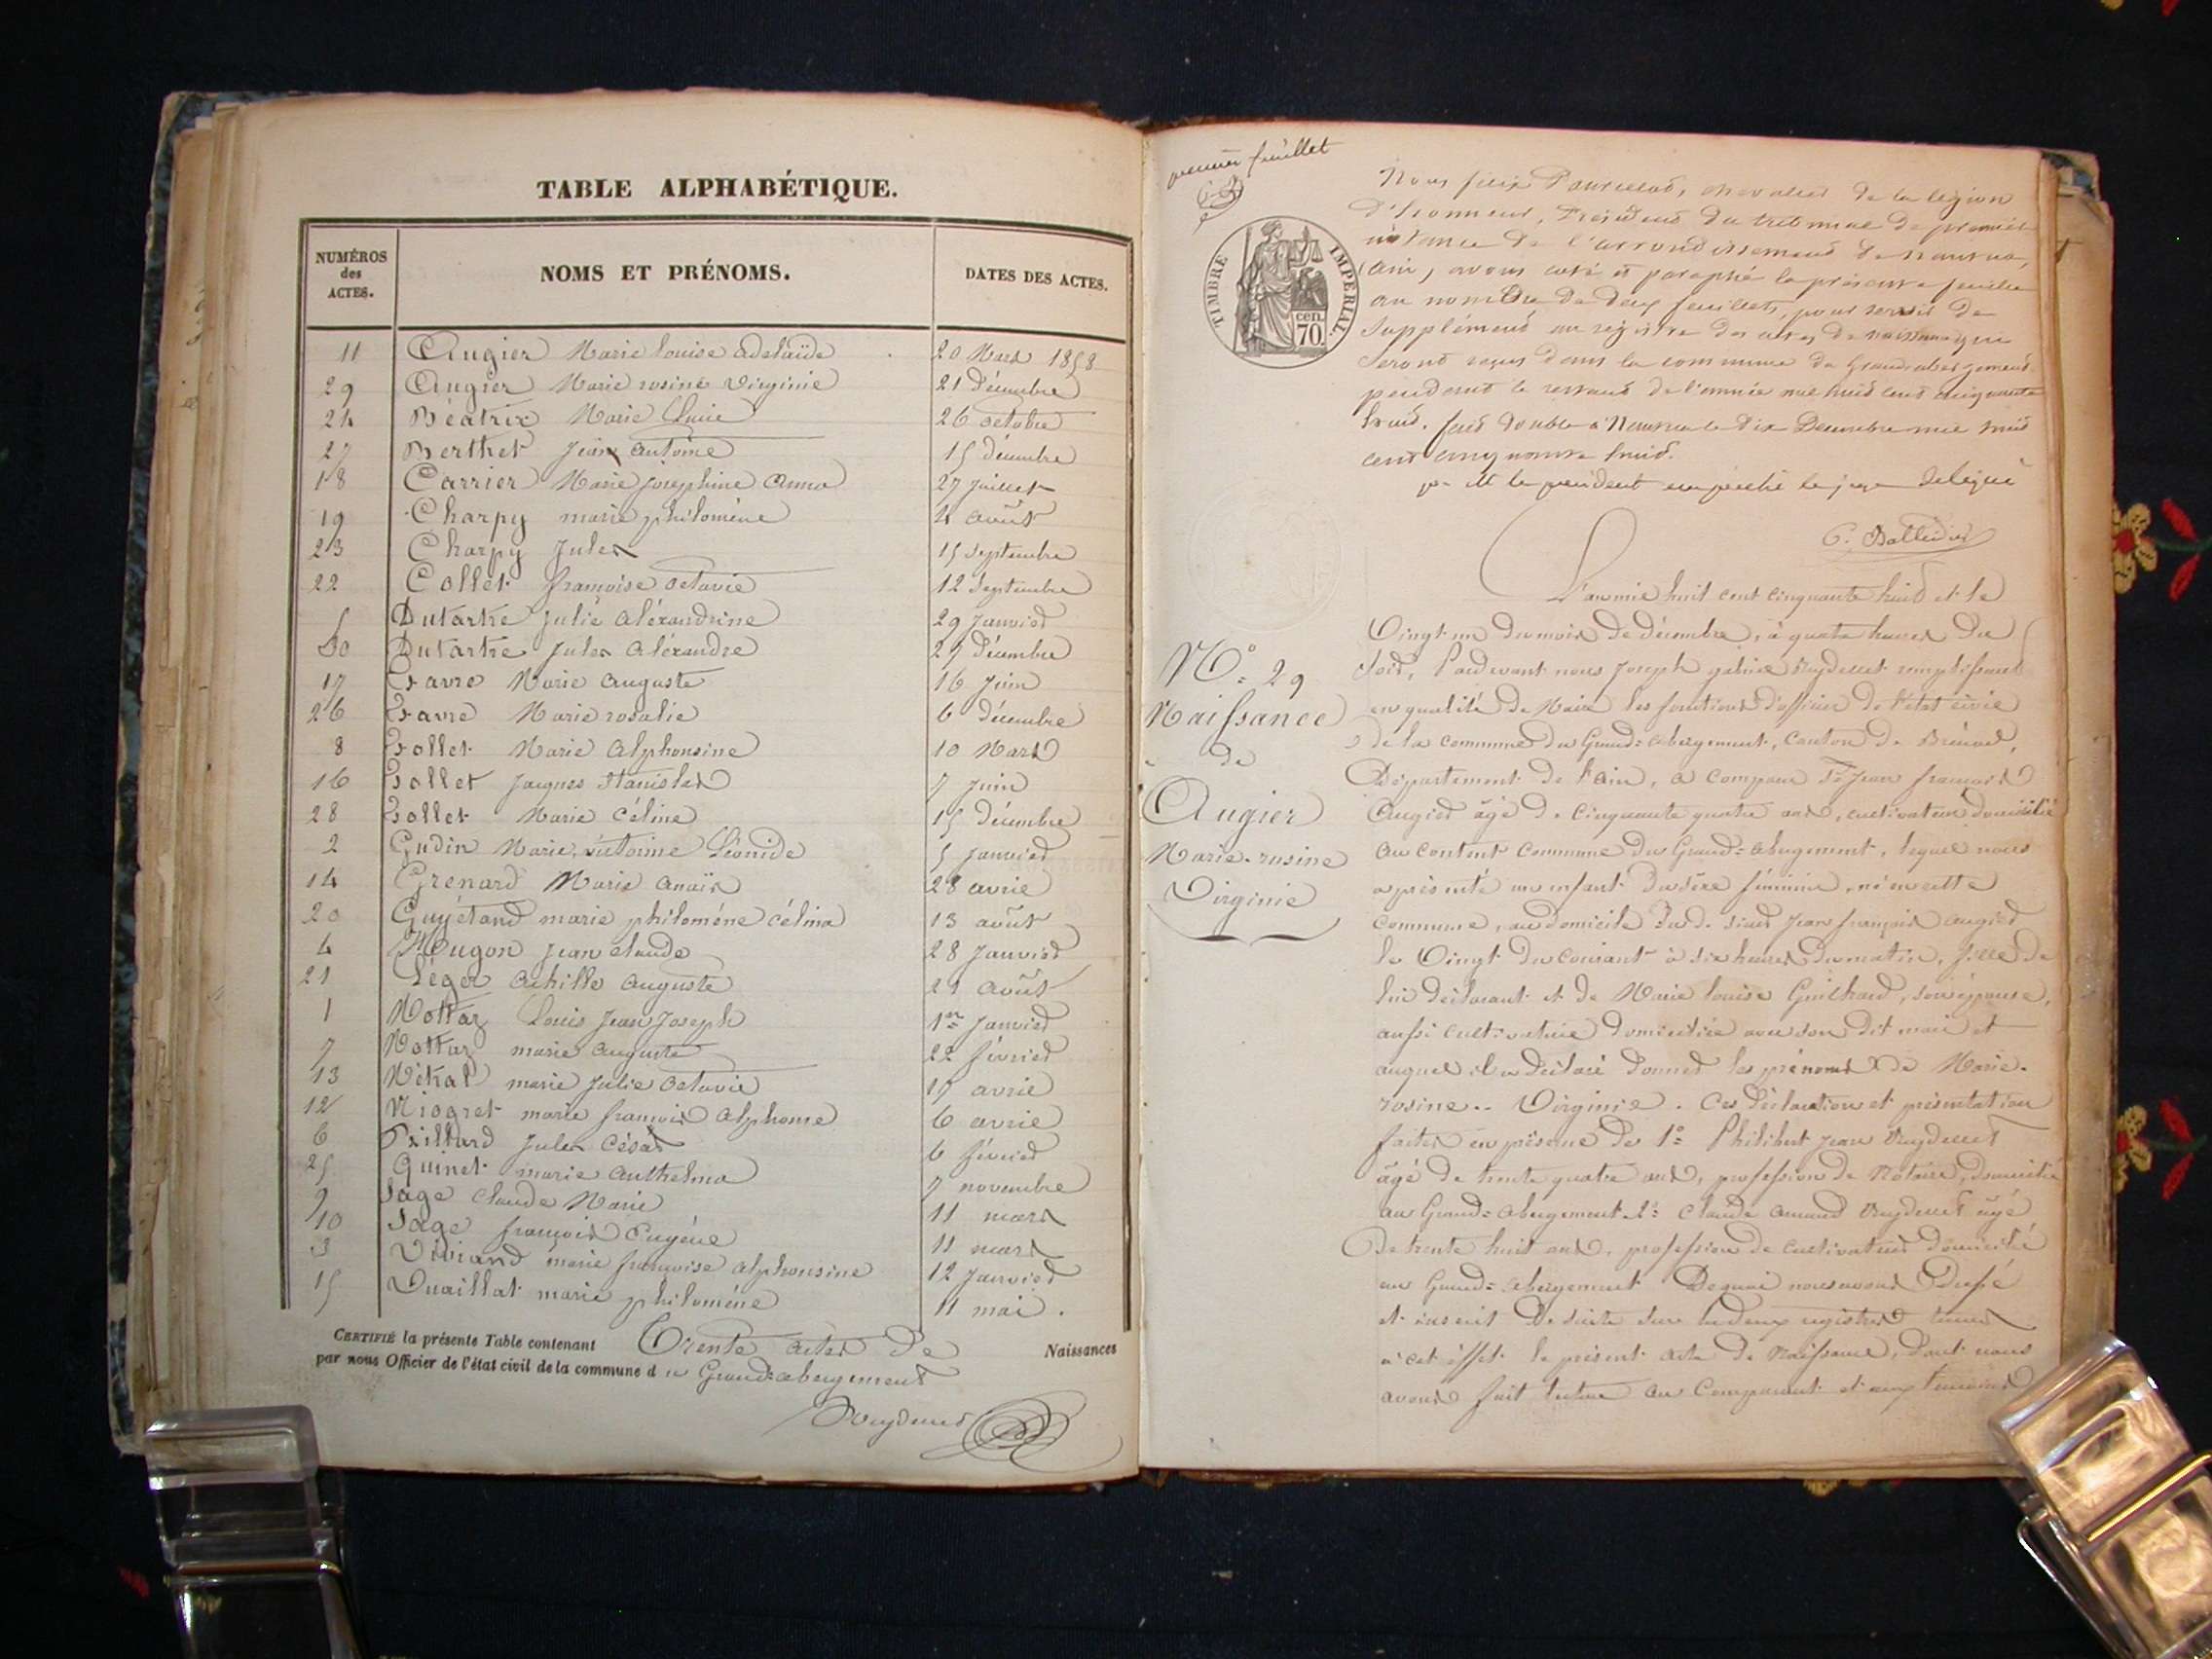 TABLE ALPHABÉTIQUE.
NUMÉROS des ACTES.
NOMS ET PRÉNOMS.
DATES DES ACTES.
11 Augier Marie louise adelaïde 20 Mars 1858
29 Augier Marie rosine Virginie 21 Décembre
24 Béatrix Marie 26 octobre
27 Berthet Jean antoine 15 décembre
18 Carrier Marie joséphine Anna 27 Juillet
19 Charpy marie philomène août
23 Charpy Jules 15 Septembre
22 Collet françoise octavie 12 Septembre
5 Dutartre Julie aléxandrine 29 Janvier
30 Dutartre Jules aléxandre décembre
17 Favre Marie auguste 16 Juin
26 Favre Marie rosalie 6 décembre
8 Follet Marie Alphonsine 10 Mars
16 Follet Jacques Stanislas 7 Juin
28 Follet Marie Céline 15 décembre
2 Gudin Marie Léonide 5 Janvier
14 Grenard Marie anaïs 28 avril
20 Guyétand marie philomène célina 13 août
4 Hugon Jean claude 28 Janvier
21 Léger achille auguste 21 août
1 Mottaz Louis Jean Joseph 1er Janvier
7 Mottaz marie auguste 22 février
13 marie Julie octavie avril
12 Niogret marie françois alphonse 6 avril
6 Julex César 6 février
25 Quinet marie anthelma 7 novembre
9 Sage Claude Marie 11 mars
10 Sage françois Eugène 11 mars
3 Viviand marie françoise alphonsine 12 Janvier
15 Vuaillat marie philomène 11 mai.
CERTIFIÉ la présente Table contenant Trente actes de Naissances
par nous Officier de l'état civil de la commune du Grand=abergement
premier feuillet
TIMBRE IMPÉRIAL.
cen. 70.
Nous félix chevalier de la légion
d'honneur, Président du tribunal de première
instance de l'arrondissement de Nantua,
(ain) avons coté et paraphé la présente feuille
au nombre de deux feuillets, pour servir de
Supplément au registre des actes de naissance qui
seront reçus dans la commune de Grand abergement
pendant le restant de l'année mil huit cent cinquante
huit. fait double à Nantua le dix Décembre mil huit
cent cinquante huit.
pr M le président empêché le juge délégué
L'an mil huit cent cinquante huit et le
Vingt un du mois de décembre, à quatre heures du
soir, Pardevant nous Joseph remplissant
en qualité de Maire les fonctions d'officier de l'état civil
de la commune du Grand=abergement, canton de Brénod,
Département de l'ain, a comparu Sr Jean françois
Augier âgé de Cinquante quatre ans, cultivateur domicilié
au content commune du Grand=abergement, lequel nous
a présenté un enfant du sèxe féminin, né en cette
commune, au domicile dud. sieur Jean françois augier
le Vingt du courant à six heures du matin, fille de
lui déclarant et de Marie louise, son épouse,
aussi cultivatrice domiciliée avec son dit mari et
auquel il a déclaré donner les prénoms de Marie.
rosine.. Virginie. Ces Déclaration et présentation
faites en présence de 1° Philibert Jean
âgé de trente quatre ans, profession de Notaire, domicilié
au Grand=abergement 2° Claude amand âgé
De trente huit ans, profession de Cultivateur domicilié
au Grand=abergement De quoi nous avons Dréssé
et inscrit De suite sur les deux registres tenus
à cet éffet le présent acte de Naissance, dont nous
avons fait lecture au Comparant et aux témoins
No. 29
Naissance
de
Augier
Marie-rosine
Virginie